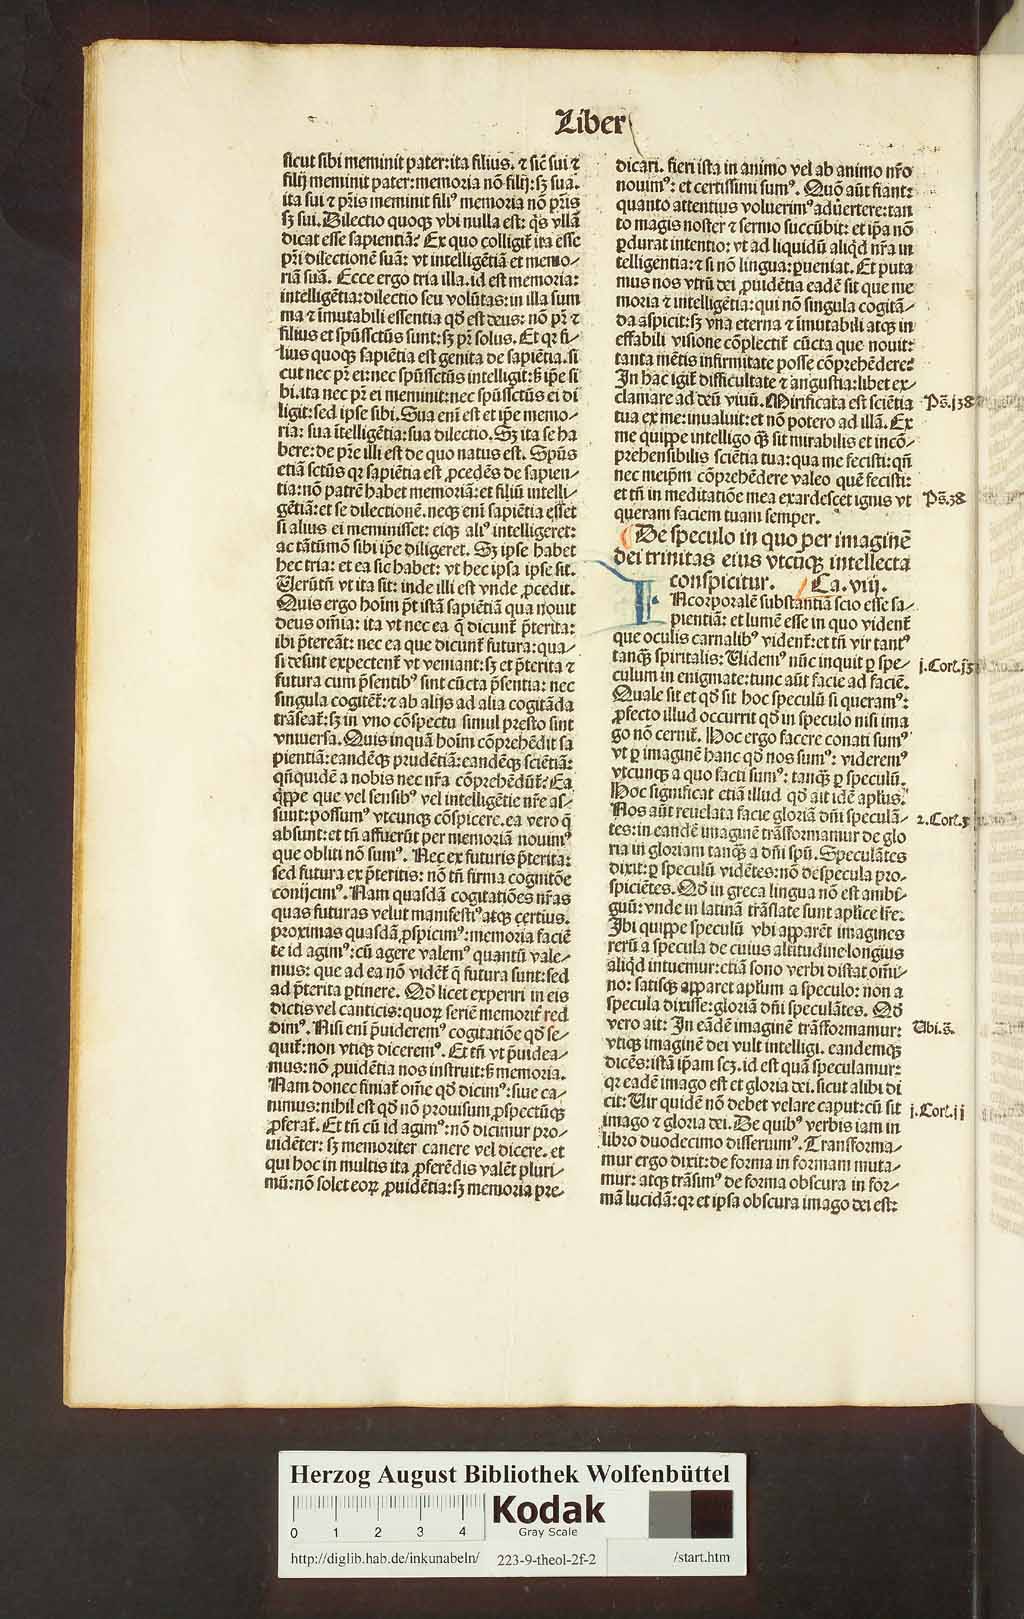 Liber
sicut sibi meminit pater: ita filius. ⁊ sic̃ sui ⁊
filij meminit pater: memoria nõ filij: sꝫ sua.
ita sui ⁊ pr̃is meminit filiꝰ memoria nõ pr̃is
sꝫ sui. Dilectio quoqꝫ vbi nulla est: q̃s vllã
dicat esse sapientiã? Ex quo colligit̃ ita esse
pr̃i dilectionẽ suã: vt intelligẽtiã et memo⸗
riã suã. Ecce ergo tria illa. id est memoria:
intelligẽtia: dilectio seu volũtas: in illa sum
ma ⁊ ĩmutabili essentia qd̃ est deus: nõ pr̃ ⁊
filius et spũssctũs sunt: sꝫ pr̃ solus. Et qꝛ fi⸗
lius quoqꝫ sapiẽtia est genita de sapiẽtia. si
cut nec pr̃ ei: nec spũssctũs intelligit: sꝫ ip̃e si
bi. ita nec pr̃ ei meminit: nec spũssctũs ei di
ligit: sed ipse sibi. Sua eni est et ip̃e memo⸗
ria: sua ĩtelligẽtia: sua dilectio. Sꝫ ita se ha
bere: de pr̃e illi est de quo natus est. Spũs
etiã sctũs qꝛ sapiẽtia est ꝓcedẽs de sapien⸗
tia: nõ patrẽ habet memoriã: et filiũ intelli⸗
gẽtiã: et se dilectionẽ. neqꝫ eni sapiẽtia esset
si alius ei meminisset: eiqꝫ aliꝰ intelligeret:
ac tãtũmõ sibi ip̃e diligeret. Sꝫ ipse habet
hec tria: et ea sic habet: vt hec ipsa ipse sit.
Uerũtñ vt ita sit: inde illi est vnde ꝓcedit.
Quis ergo hoĩm p̃t istã sapiẽtiã qua nouit
deus om̃ia: ita vt nec ea q̃ dicunt̃ p̃terita:
ibi p̃tereãt: nec ea que dicunt̃ futura: qua⸗
si desint expectent̃ vt veniant: sꝫ et p̃terita ⁊
futura cum p̃sentibꝰ sint cũcta p̃sentia: nec
singula cogitẽt: ⁊ ab alijs ad alia cogitãda
trãseat̃: sꝫ in vno cõspectu simul presto sint
vniuersa. Quis inquã hoĩm cõprehẽdit sa
pientiã: eandẽqꝫ prudẽtiã: eandẽqꝫ sciẽtiã:
qñquidẽ a nobis nec nr̃a cõprehẽdit̃? Ea
q̃ppe que vel sensibꝰ vel intelligẽtie nr̃e as⸗
sunt: possumꝰ vtcunqꝫ cõspicere. ea vero q̃
absunt: et tñ affuerũt per memoriã nouimꝰ
que obliti nõ sumꝰ. Nec ex futuris p̃terita:
sed futura ex p̃teritis: nõ tñ firma cognitõe
conijcimꝰ. Nam quasdã cogitatiões nr̃as
quas futuras velut manifestiꝰ atqꝫ certius.
proximas quasdã ꝓspicimꝰ: memoria faciẽ
te id agimꝰ: cũ agere valemꝰ quantũ vale⸗
mus: que ad ea nõ videt̃ q̃ futura sunt: sed
ad p̃terita ꝑtinere. Qd̃ licet experiri in eis
dictis vel canticis: quoꝝ seriẽ memorit̃ red
dimꝰ. Nisi eni p̃uideremꝰ cogitatiõe qd̃ se⸗
quit̃: non vtiqꝫ diceremꝰ. Et tñ vt p̃uidea⸗
mus: nõ ꝓuidẽtia nos instruit: sꝫ memoria.
Nam donec finiat̃ om̃e qd̃ dicimꝰ: siue ca⸗
nimus: nihil est qd̃ nõ prouisum ꝓspectũqꝫ
ꝓferat̃. Et tñ cũ id agimꝰ: nõ dicimur pro⸗
uidẽter: sꝫ memoriter canere vel dicere. et
qui hoc in multis ita ꝓferẽdis valẽt pluri⸗
mũ: nõ solet eoꝝ ꝓuidẽtia: sꝫ memoria pre⸗
dicari. fieri ista in animo vel ab animo nr̃o
nouimꝰ: et certissimi sumꝰ. Quõ aũt fiant:
quanto attentius voluerimꝰ aduertere: tan
to magis noster ⁊ sermo succũbit: et ip̃a nõ
ꝑdurat intentio: vt ad liquidũ aliqd̃ nr̃a in
telligentia: ⁊ si nõ lingua: ꝑueniat. Et puta
mus nos vtrũ dei ꝓuidẽtia eadẽ sit que me
moria ⁊ intelligẽtia: qui nõ singula cogitã⸗
da aspicit: sꝫ vna eterna ⁊ ĩmutabili atqꝫ in
effabili visione cõplectit̃ cũcta que nouit:
tanta mẽtis infirmitate posse cõprehẽdere?
In hac igit̃ difficultate ⁊ angustia: libet ex⸗
clamare ad deũ viuũ. Mirificata est sciẽtia
Ps̃.j38
tua ex me: inualuit: et nõ potero ad illã. Ex
me quippe intelligo q̃ꝫ sit mirabilis et incõ⸗
prehensibilis sciẽtia tua: qua me fecisti: qñ
nec meip̃m cõprehẽdere valeo quẽ fecisti:
et tñ in meditatiõe mea exardescet ignis vt
Ps̃.38
queram faciem tuam semper.
De speculo in quo per imaginẽ
dei trinitas eius vtcũqꝫ intellecta
conspicitur. Ca. viij.
INcorporalẽ substantiã scio esse sa⸗
pientiã: et lumẽ esse in quo vident̃
que oculis carnalibꝰ vident̃: et tñ vir tantꝰ
tanqꝫ spiritalis: Uidemꝰ nũc inquit ꝑ spe⸗
j.Cor.j3
culum in enigmate: tunc aũt facie ad faciẽ.
Quale sit et qd̃ sit hoc speculũ si queramꝰ:
ꝓfecto illud occurrit qd̃ in speculo nisi ima
go nõ cernit̃. Hoc ergo facere conati sumꝰ
vt ꝑ imaginẽ hanc qd̃ nos sumꝰ: videremꝰ
vtcunqꝫ a quo facti sumꝰ: tanqꝫ ꝑ speculũ.
Hoc significat etiã illud qd̃ ait idẽ apl̃us.
Nos aũt reuelata facie gloriã dñi speculã⸗
2.Cor.3
tes: in eandẽ imaginẽ trãsformamur de glo
ria in gloriam tanqꝫ a dñi spũ. Speculãtes
dixit: ꝑ speculũ vidẽtes: nõ de specula pro⸗
spiciẽtes. Qd̃ in greca lingua nõ est ambi⸗
guũ: vnde in latinã trãslate sunt apl̃ice lr̃e.
Ibi quippe speculũ vbi apparẽt imagines
rerũ a specula de cuius altitudine longius
aliqd̃ intuemur: etiã sono verbi distat om̃i⸗
no: satisqꝫ apparet apl̃um a speculo: non a
specula dixisse: gloriã dñi speculãtes. Qd̃
vero ait: In eãdẽ imaginẽ trãsformamur:
Ubi.s̃.
vtiqꝫ imaginẽ dei vult intelligi. eandemqꝫ
dicẽs: istã ip̃am scꝫ. id est quã speculamur:
qꝛ eadẽ imago est et gloria dei. sicut alibi di
cit: Uir quidẽ nõ debet velare caput: cũ sit
j.Cor.jj
imago ⁊ gloria dei. De quibꝰ verbis iam in
libro duodecimo disseruimꝰ. Transforma⸗
mur ergo dixit: de forma in formam muta⸗
mur: atqꝫ trãsimꝰ de forma obscura in for⸗
mã lucidã: qꝛ et ipsa obscura imago dei est:
Herzog August Bibliothek Wolfenbüttel
0 1 2 3 4
Kodak
Gray Scale
http://diglib.hab.de/inkunabeln/ 223-9-theol-2f-2 /start.htm